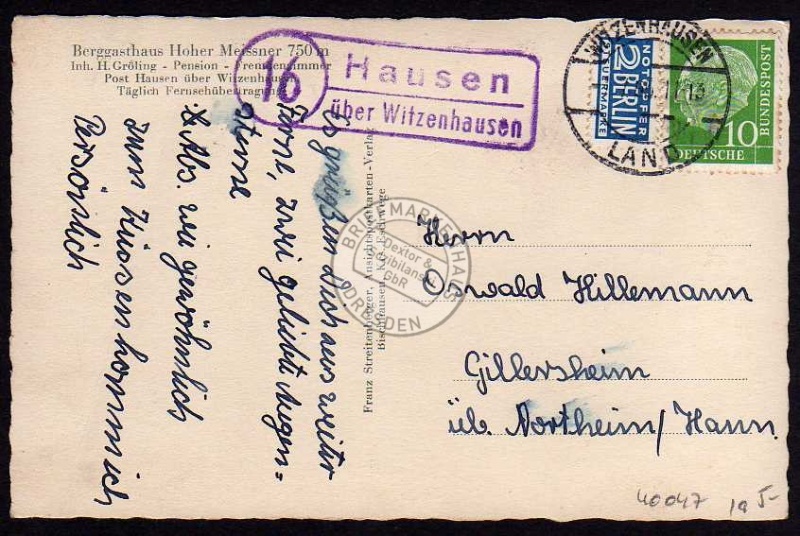 Berggasthaus Hoher Meissner 750 m
Inh. H. Gröling - Pension - Fremdenzimmer
Post Hausen über Witzenhausen
Täglich Fernsehübertragung
16
Hausen
über Witzenhausen
NOTOPFER
2 BERLIN
STEUERMARKE
WITZENHAUSEN
LAND
10
DEUTSCHE
BUNDESPOST
Es grüßen Dich aus weiter
Ferne, zwei geliebte Augen=
sterne
& Abs. wie gewöhnlich
zum Küssen komm ich
persönlich
Franz Streitenberger, Ansichtspostkarten-Verlag
Bischhausen, Krs. Eschwege
BRIEFMARKENHAUS
Dextor &
GbR
DRESDEN
Herrn
Oswald Hillemann
Gillersheim
üb. Northeim/Hann.
40047 1a 5-